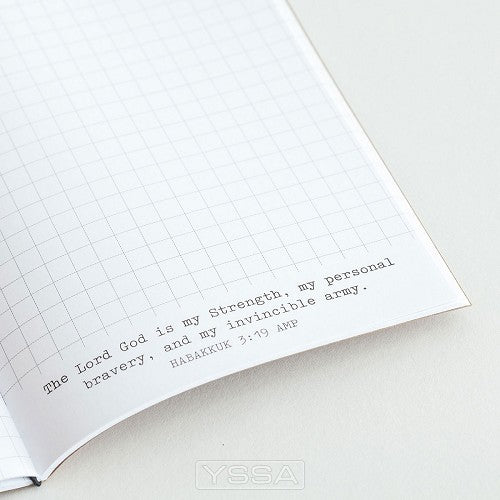 The Lord God is my Strength, my personal
bravery, and my invincible army.
HABAKKUK 3:19 AMP
YSSA